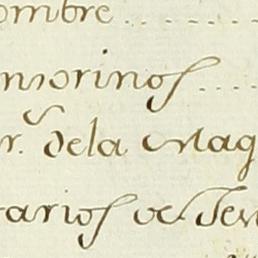 ombre
nsorinos
r. dela Maq
tarios de Ten